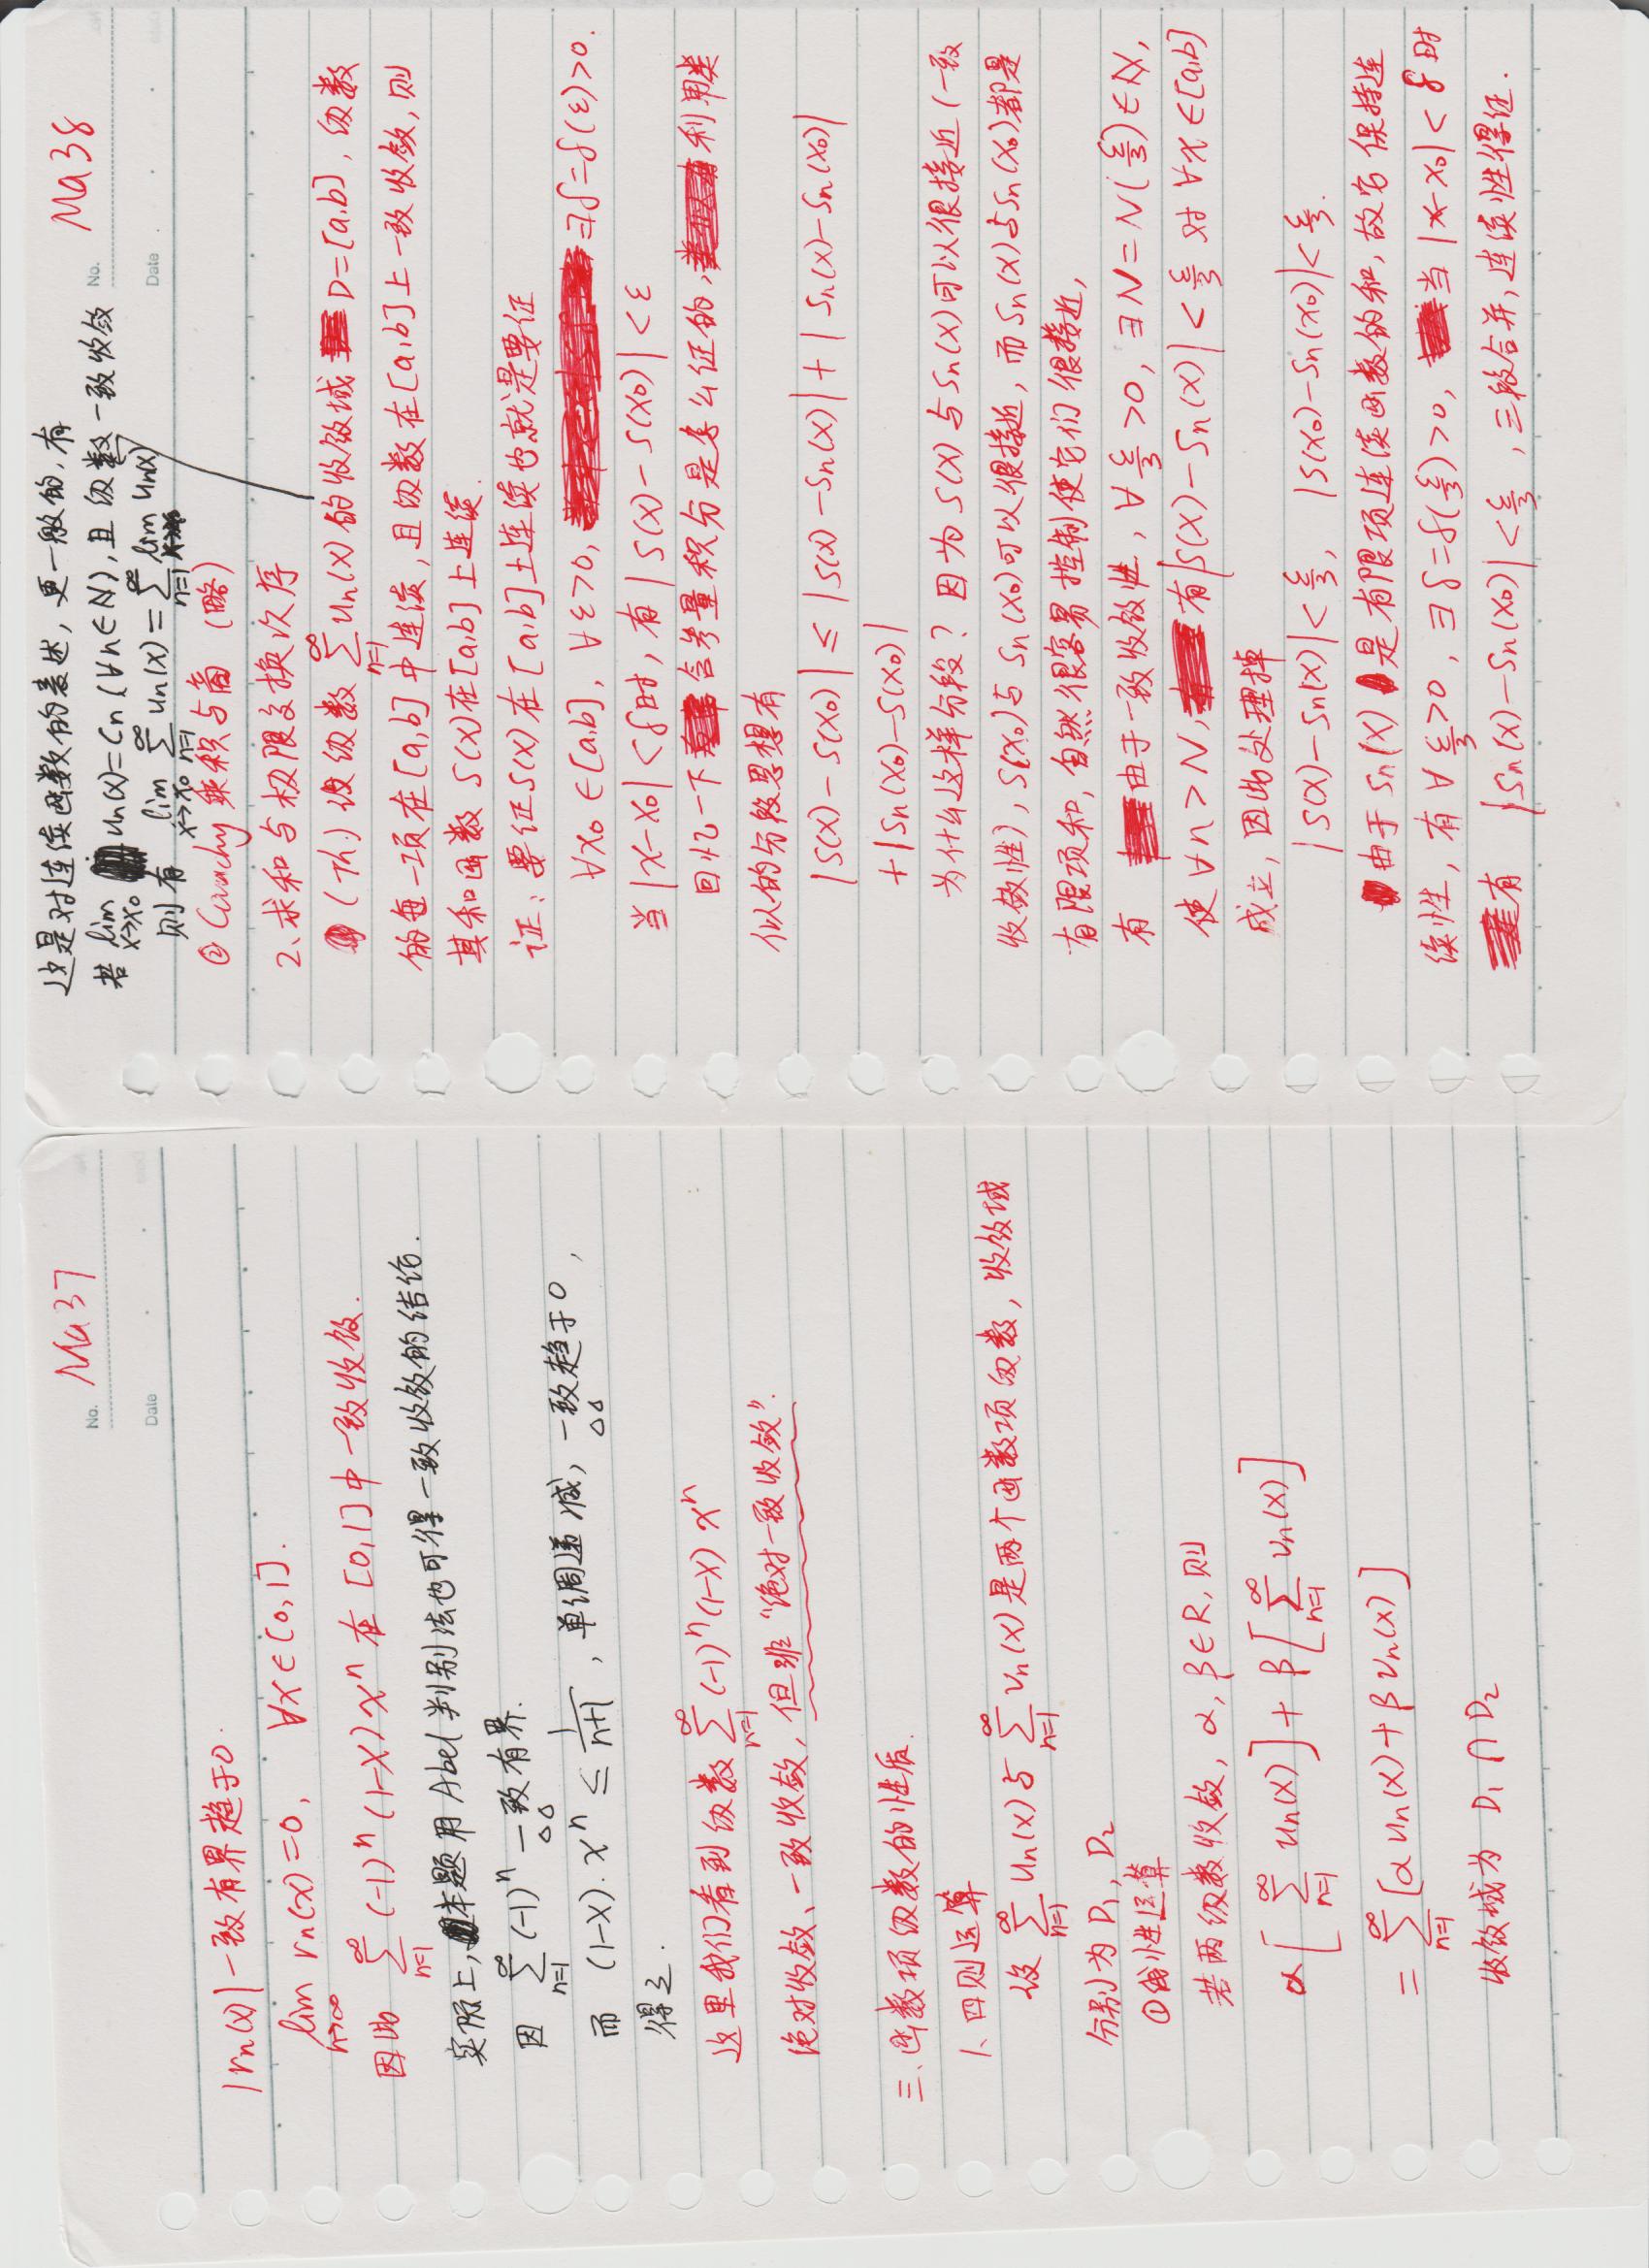 No. Ma37
Date
|rn(x)|一致有界趋于0.
lim n→∞ rn(x)=0, ∀x∈[0,1].
因此 ∑ n=1 ∞ (-1)^n (1-x) x^n 在[0,1]中一致收敛.
实际上,本题用Abel判别法也可得一致收敛的结论.
因 ∑ n=1 ∞ (-1)^n 一致有界.
而 (1-x)·x^n ≤ 1/(n+1), 单调递减, 一致趋于0,
得之.
这里我们看到级数 ∑ n=1 ∞ (-1)^n (1-x) x^n
绝对收敛、一致收敛, 但非“绝对一致收敛”.
三、函数项级数的性质.
1、四则运算
设 ∑ n=1 ∞ un(x) 与 ∑ n=1 ∞ vn(x) 是两个函数项级数, 收敛域
分别为 D₁, D₂
①线性运算
若两级数收敛, α, β∈R, 则
α[∑ n=1 ∞ un(x)] + β[∑ n=1 ∞ vn(x)]
= ∑ n=1 ∞ [α un(x)+β vn(x)]
收敛域为 D₁∩D₂
No. Ma38
Date
这是对连续函数的表述, 更一般的, 有
若 lim x→x₀ un(x)=Cn (∀n∈N), 且级数一致收敛
则有 lim x→x₀ ∑ n=1 ∞ un(x) = ∑ n=1 ∞ lim x→x₀ un(x)
② Cauchy 乘积与商 (略)
2、求和与极限交换次序
(Th.) 设级数 ∑ n=1 ∞ un(x) 的收敛域 D=[a,b], 级数
的每一项在[a,b]中连续, 且级数在[a,b]上一致收敛, 则
其和函数 S(x)在[a,b]上连续.
证: 要证S(x)在[a,b]上连续也就是要证
∀x₀∈[a,b], ∀ε>0, ∃δ=δ(ε)>0.
当|x-x₀|<δ时, 有|S(x)-S(x₀)|<ε
回忆一下含参量积分是怎么证的, 利用类
似的分段思想有
|S(x)-S(x₀)| ≤ |S(x)-Sn(x)| + |Sn(x)-Sn(x₀)|
+|Sn(x₀)-S(x₀)|
为什么这样分段? 因为S(x)与Sn(x)可以很接近(一致
收敛性), S(x₀)与Sn(x₀)可以很接近, 而Sn(x)与Sn(x₀)都是
有限项和, 自然很容易控制使它们很接近,
有 由于一致收敛性, ∀ε/3>0, ∃N=N(ε/3)∈N,
使∀n>N, 有|S(x)-Sn(x)|<ε/3 对∀x∈[a,b]
成立, 因此处理掉
|S(x)-Sn(x)|<ε/3, |S(x₀)-Sn(x₀)|<ε/3.
由于Sn(x)是有限项连续函数的和, 故它保持连
续性, 有∀ε/3>0, ∃δ=δ(ε/3)>0, 当|x-x₀|<δ时
有 |Sn(x)-Sn(x₀)|<ε/3, 三段合并, 连续性得证.